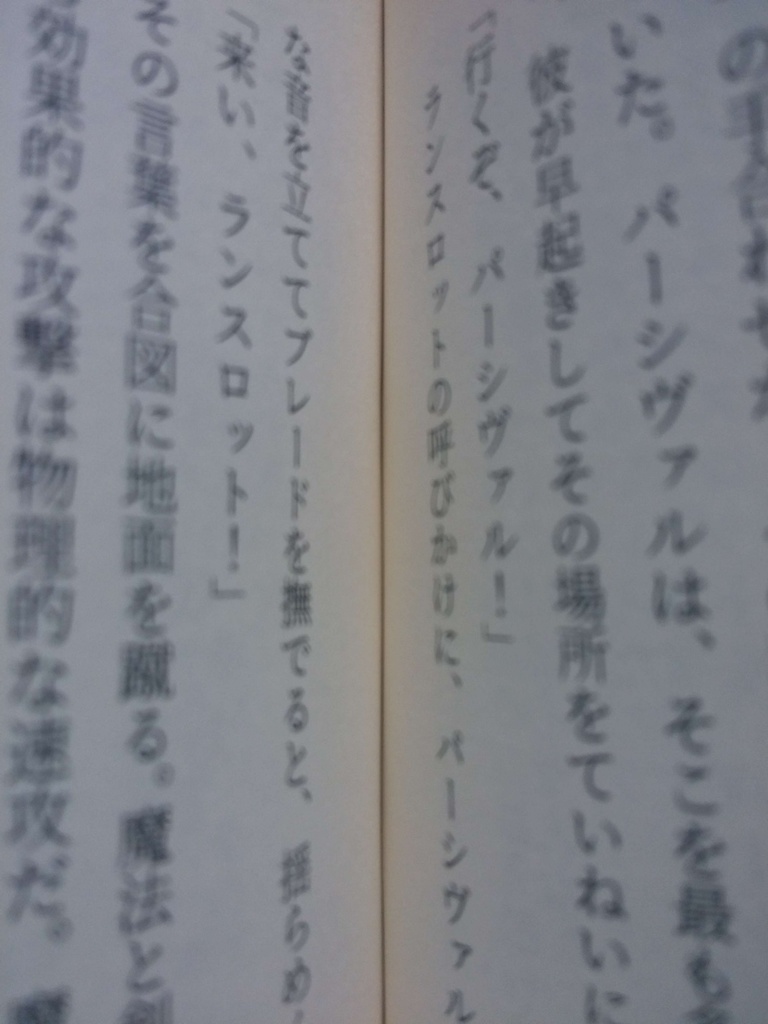 の手合わせ
いた。パーシヴァルは、そこを最も
彼が早起きしてその場所をていねいに
「行くぞ、パーシヴァル！」
ランスロットの呼びかけに、パーシヴァル
な音を立ててブレードを撫でると、揺らめ
「来い、ランスロット！」
その言葉を合図に地面を蹴る。魔法と剣
効果的な攻撃は物理的な速攻だ。魔